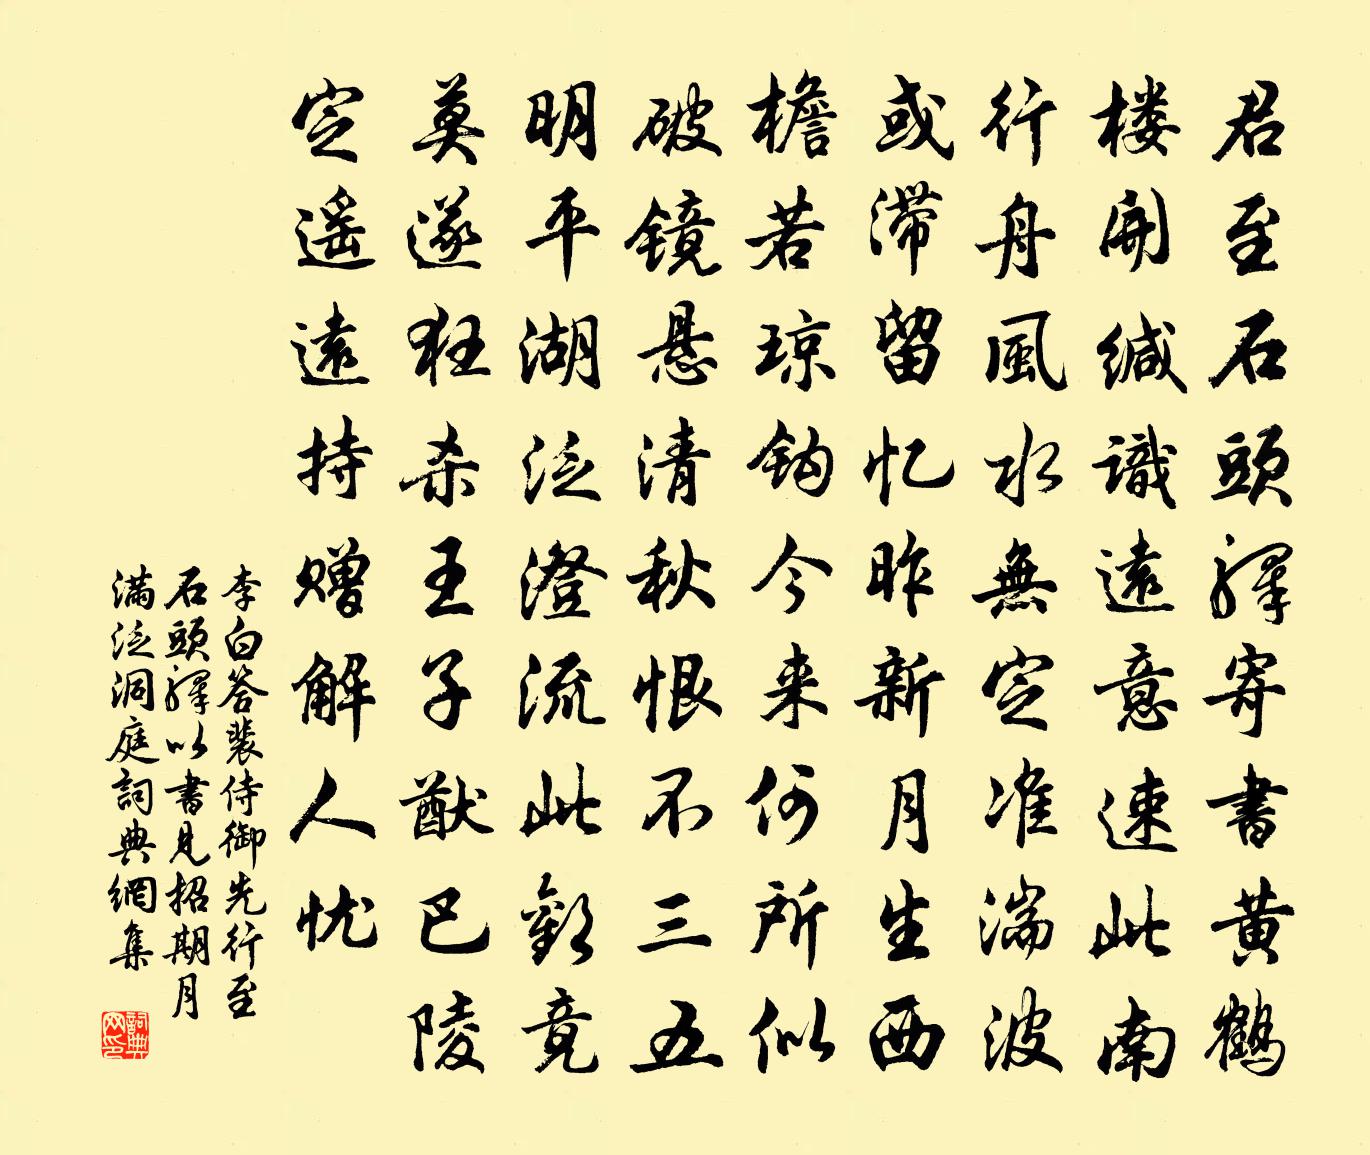 君至石頭驛寄書黄鶴
楼開緘識遠意速此南
行舟風水無定准湍波
或滞留忆昨新月生西
檐若琼钩今来何所似
破镜悬清秋恨不三五
明平湖泛澄流此歡竟
莫遂狂杀王子猷巴陵
定遥遠持赠解人忧
李白答裴侍御先行至
石頭驛以書見招期月
满泛洞庭詞典網集
詞典网印